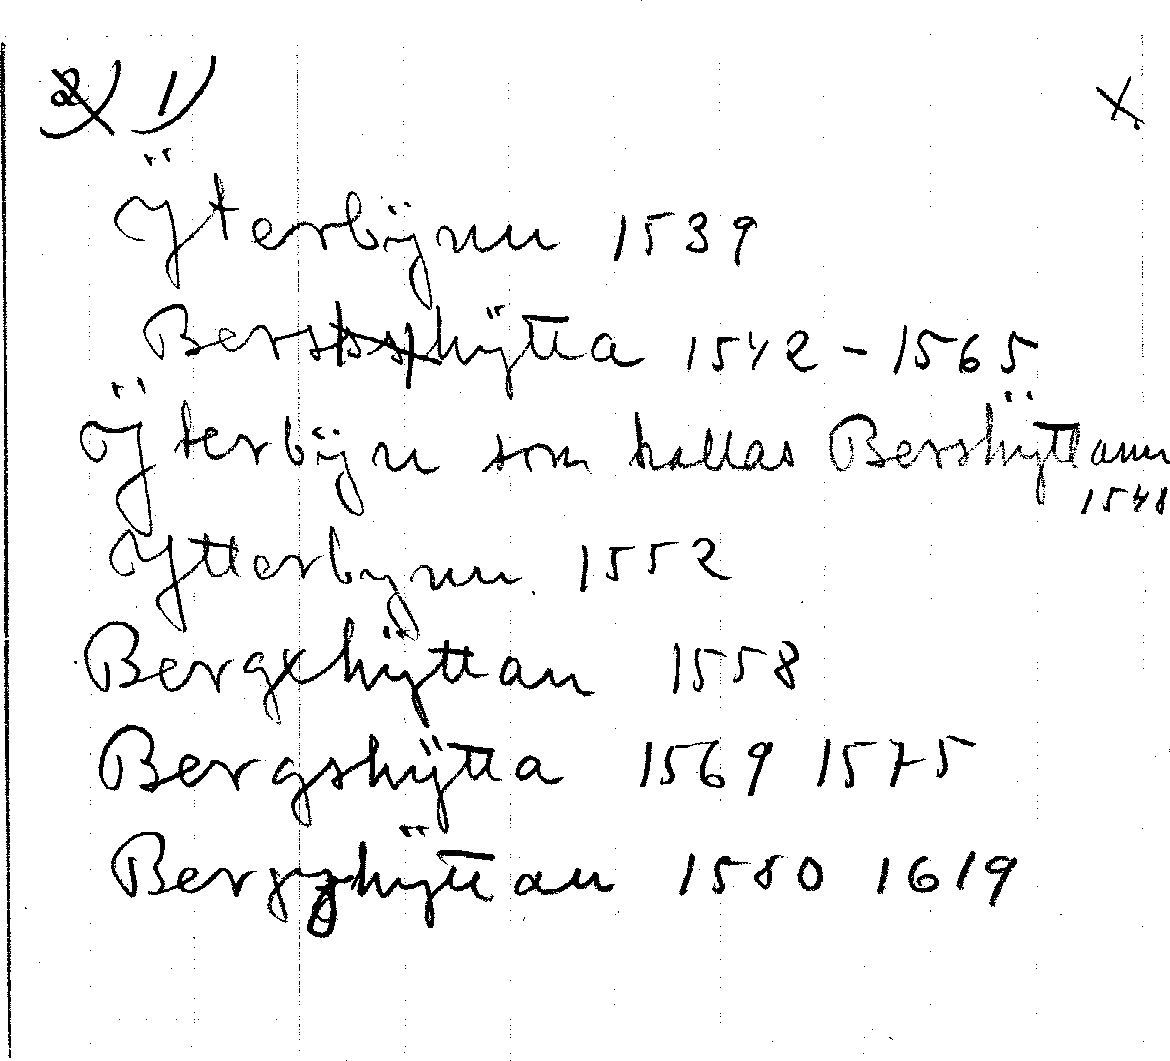 1)
Ÿterbÿnn 1539
Bershÿtta 1542 - 1565
Ÿterbÿn som kallas Bershÿttann
1548
Ytterbynn. 1552
Bergxhÿttan 1558
Bergshÿtta 1569 1575
Bergzhÿttan 1580 1619